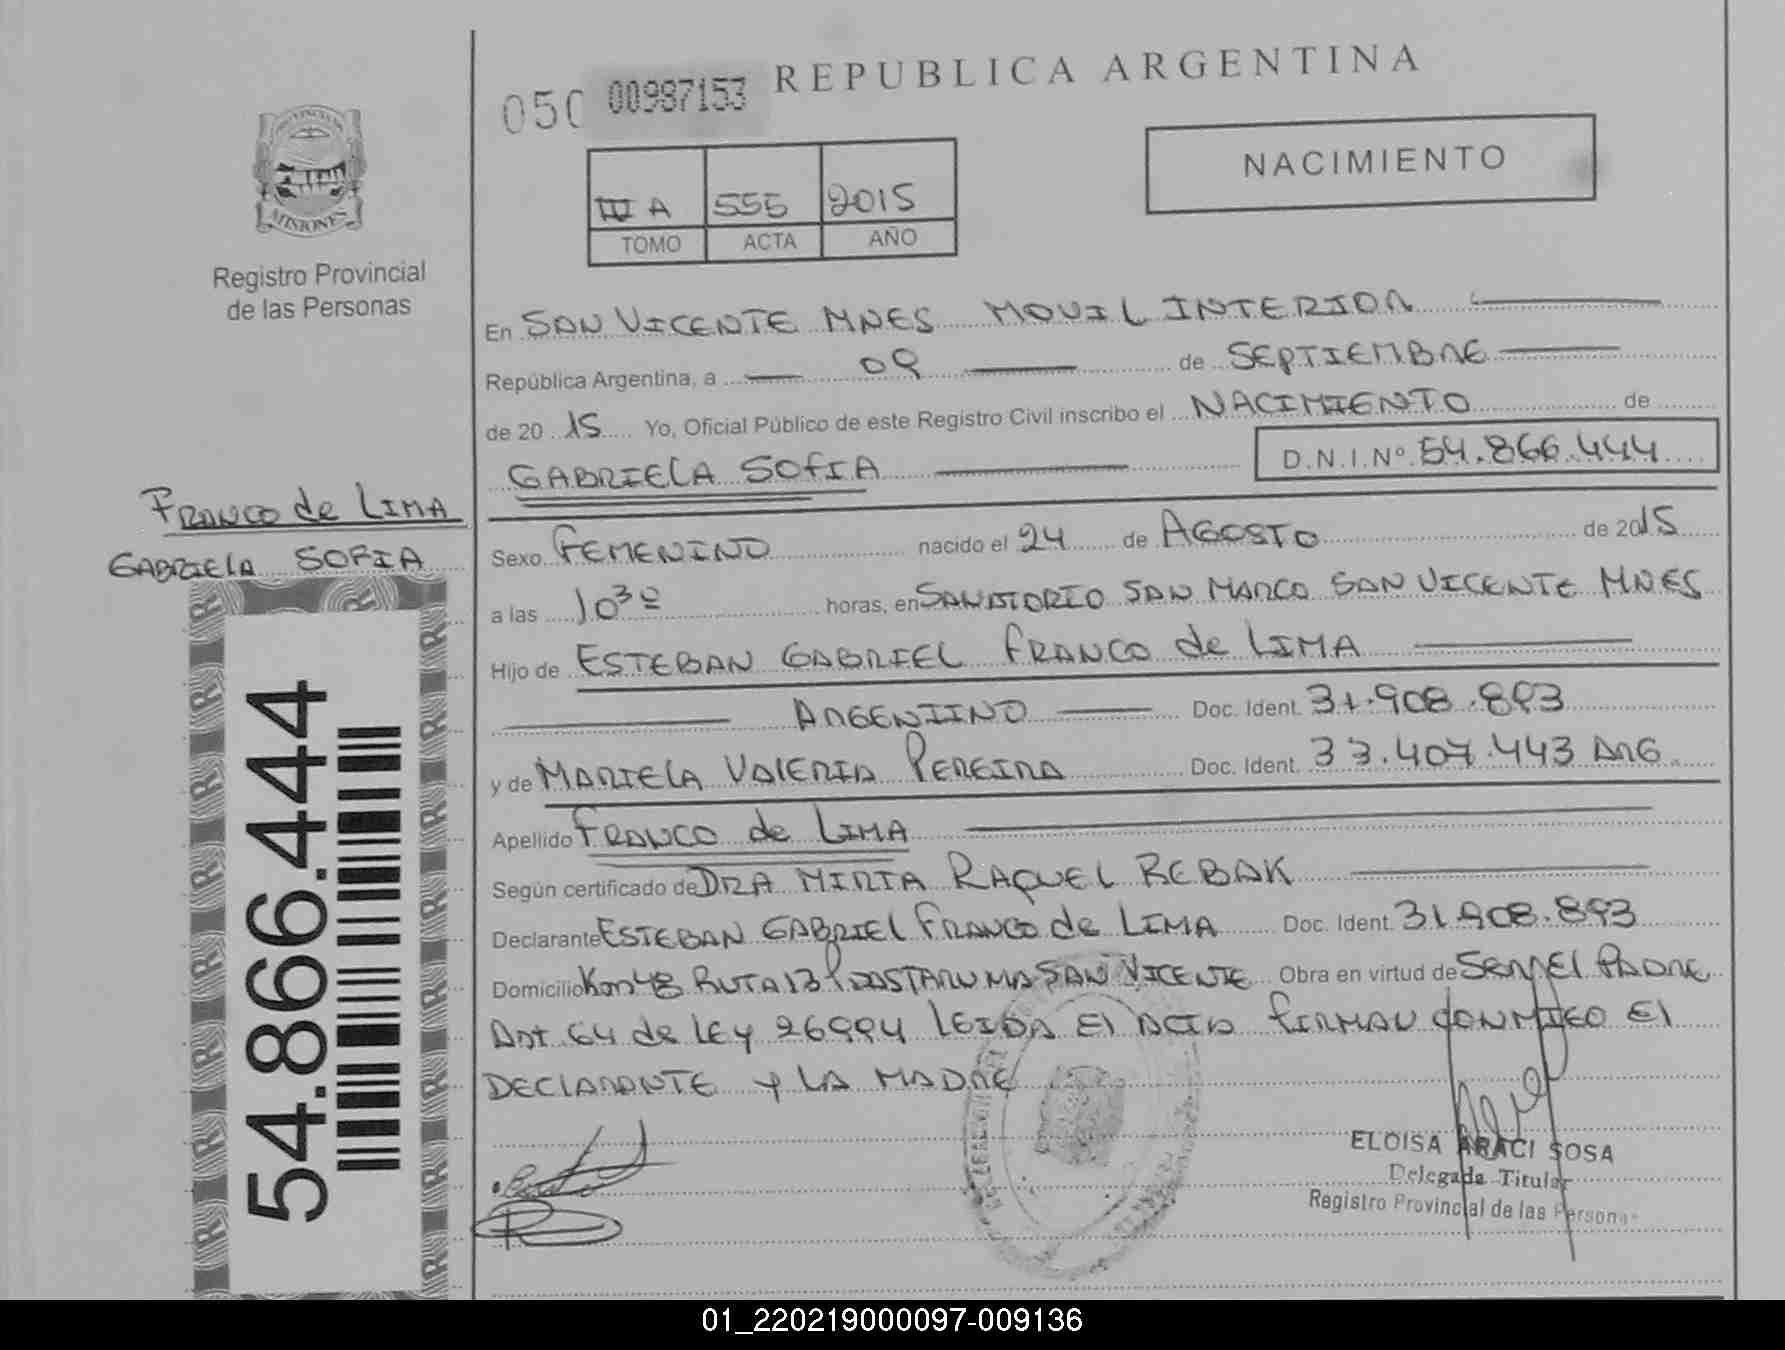 050 00987153 REPUBLICA ARGENTINA
NACIMIENTO
III A 555 2015
TOMO ACTA AÑO
MISIONES
Registro Provincial
de las Personas
En SAN VICENTE MNES MOVIL INTERIOR
República Argentina, a 09 de SEPTIEMBRE
de 20 15 Yo, Oficial Público de este Registro Civil inscribo el NACIMIENTO de
GABRIELA SOFIA D.N.I.Nº 54.866.444
FRANCO de LIMA
GABRIELA SOFIA
54.866.444
Sexo FEMENINO nacido el 24 de AGOSTO de 2015
a las 10 30 horas, en SANATORIO SAN MARCO SAN VICENTE MNES
Hijo de ESTEBAN GABRIEL FRANCO de LIMA
ARGENTINO Doc. Ident. 31.908.893
y de MARIELA VALERIA PEREIRA Doc. Ident. 33.407.443 ARG
Apellido FRANCO de LIMA
Según certificado de DRA MIRTA RAQUEL REBAK
Declarante ESTEBAN GABRIEL FRANCO de LIMA Doc. Ident. 31.908.893
Domicilio Km 48 RUTA 13 SAN VICENTE Obra en virtud de SER EL PADRE
ART 64 de LEY 26994 LEIDA El ACTA FIRMAN CONMIGO El
DECLARANTE y LA MADRE
ELOISA ARACI SOSA
Delegada Titular
Registro Provincial de las Persona
01_220219000097-009136